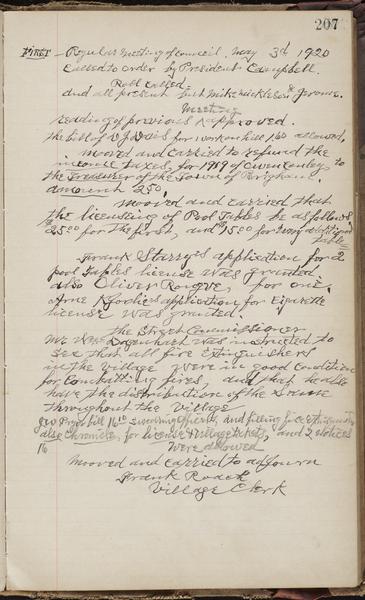 207
FIRST - Regular meeting of council. May 3d 1920
Called to order by President Campbell.
Roll called
and all present but mike mickleson & Jerome.
meeting
reading of previous approved.
the bill of V J Davis for work on hill 1.60 allowed,
mooved and carried to refund the
income taxes, for 1919 of Owen to
the Treasurer of the Town of Brigham.
amount 250.
mooved and carried that
the licensing of Pool Tables be as follows
$25.00 for the first, and $15.00 for Every additional
table
Frank Starrys application for 2
pool tables license was granted.
also Oliver for one.
Arne application for Cigarette
license was granted.
the Street Commissioner
Mr Wm was instructed to
see that all fire Extinguishers
in the Village were in good Condition
for Combatting fires, and that he also
have the distribution of the same
throughout the Village
Geo bill 16 officers, and filling fire
also Chronicle, for license & Village tickets, and 2 notices
16 Were allowed
Mooved and carried to adjourn
Frank Roach
Village Clerk